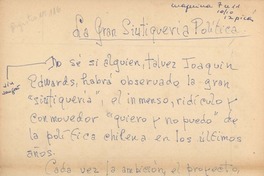 maquina 7 u 11
10/10
12 picas
La Gran Siutiqueria Política
No sé si alguien, talvez Joaquin
Edwards, habrá observado la gran
"siutiqueria", el inmenso, ridículo y
conmovedor "quiero y no puedo" de
la política chilena en los últimos
años.
Cada vez la ambición, el proyecto,